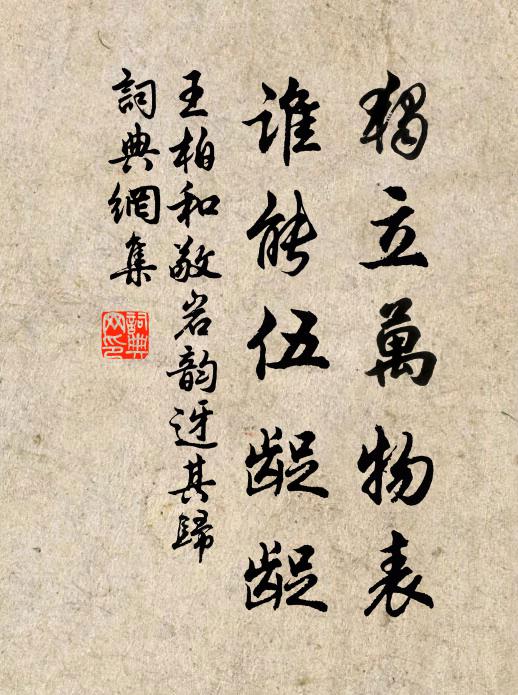 獨立萬物表
誰能伍龊龊
王柏和敬岩韵迓其歸
詞典網集
詞典
网印